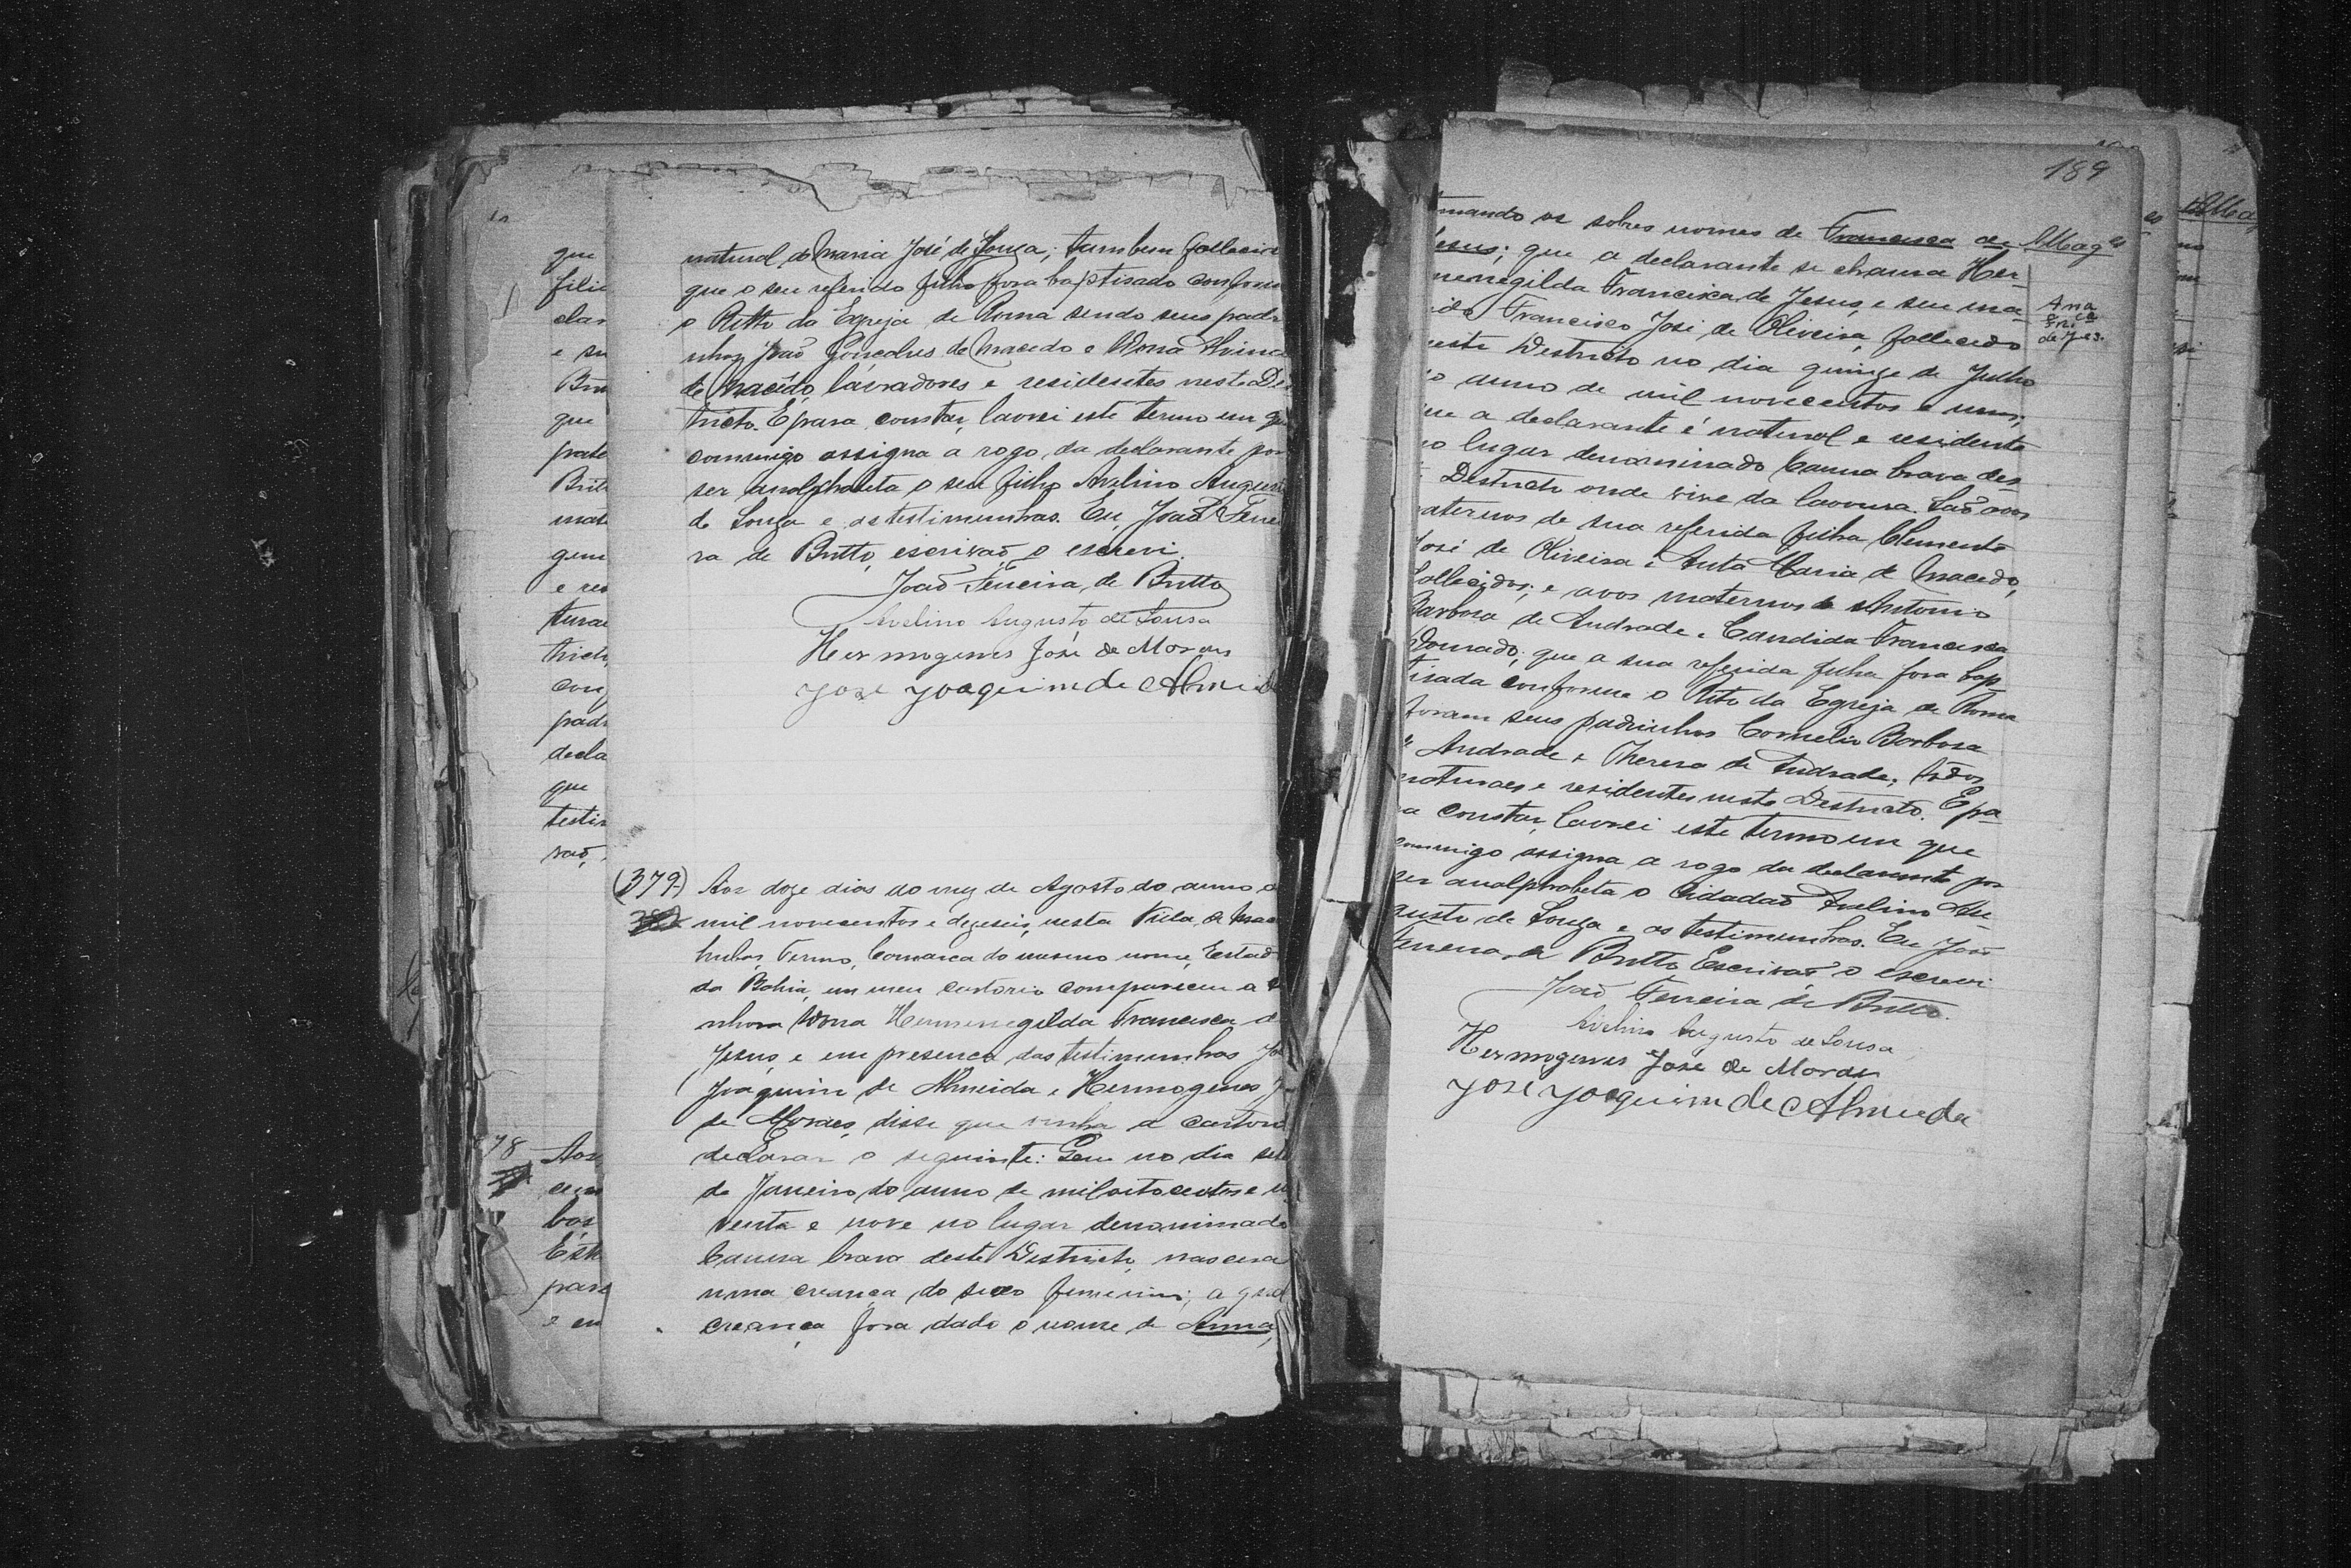 que
filic
clar
e su
Brit
que
pate
Brit
mat
gem
e res
tura
tricto
conf
padr
decla
que
testi
vaõ,
78 Aos
cem
bas
Esta
pare
e em
natural de Maria José de Souza, tambem fallecid
que o seu referido filho fora baptisado conform
o Ritto da Egreja de Roma sendo seus padri
nhos João Gonçalves de Macedo e Dona
de Macêdo, lavradores e residentes neste Dis
tricto. E para constar, lavrei este termo em que
commigo assigna a rogo da declarante por
ser analphabeta o seu filho Avelino Augus
de Souza e as testimunhas. Eu, João Ferrei
ra de Britto, escrivaõ o escrevi.
João Ferreira de Britto
Avelino Augusto de Sousa
Hermogenes José de Moraes
José Joaquim de Almeid
(379) Aos doze dias do mez de Agosto do anno d
mil novecentos e dezeseis, nesta Villa de Maca
hubas, Termo, Comarca do mesmo nome, Estado
da Bahia, em meu cartorio compareceu a S
nhora Dona Hermenegilda Francisca de
Jesus, e em presença das testimunhas Jo
Joaquim de Almeida e Hermogenes J
de Moraes, disse que vinha a cartori
declarar o seguinte: Que no dia sete
de Janeiro do anno de mil oitocentos e no
venta e nove no lugar denominado
Canna brava deste Districto, nascera
uma creança do sexo feminino; a qual
creança fora dado o nome de Anna,
189
tomando os sobres nomes de Francisca de
Jesus; que a declarante se chama Her-
menegilda Francisca de Jesus, e seu ma-
rido Francisco José de Oliveira, fallecido
neste Districto no dia quinze de Julho
do anno de mil novecentos e um;
que a declarante é natural e residente
no lugar denominado Canna brava des
Districto onde vive da lavoura. Saõ avos
paternos de sua referida filha Clemente
José de Oliveira e Anta Maria de Macedo,
fallecidos; e avos maternos de Antonio
Barbosa de Andrade e Candida Francisca
Dourado; que a sua referida filha fora bap
tisada conforme o Rito da Egreja de Roma
foram seus padrinhos Cornelio Barbosa
de Andrade e Thereza de Andrade, todos
naturaes e residentes neste Destricto. E pa-
ra constar, lavrei este termo em que
commigo assigna a rogo da declarante por
ser analphabeta o Cidadaõ Avelino Au-
gusto de Souza e as testimunhas. Eu João
Ferreira de Britto, Escrivaõ o escrevi
João Ferreira de Britto.
Avelino Augusto de Sousa
Hermogenes José de Moraes
José Joaquim de Almeida
Ana
de Jes.